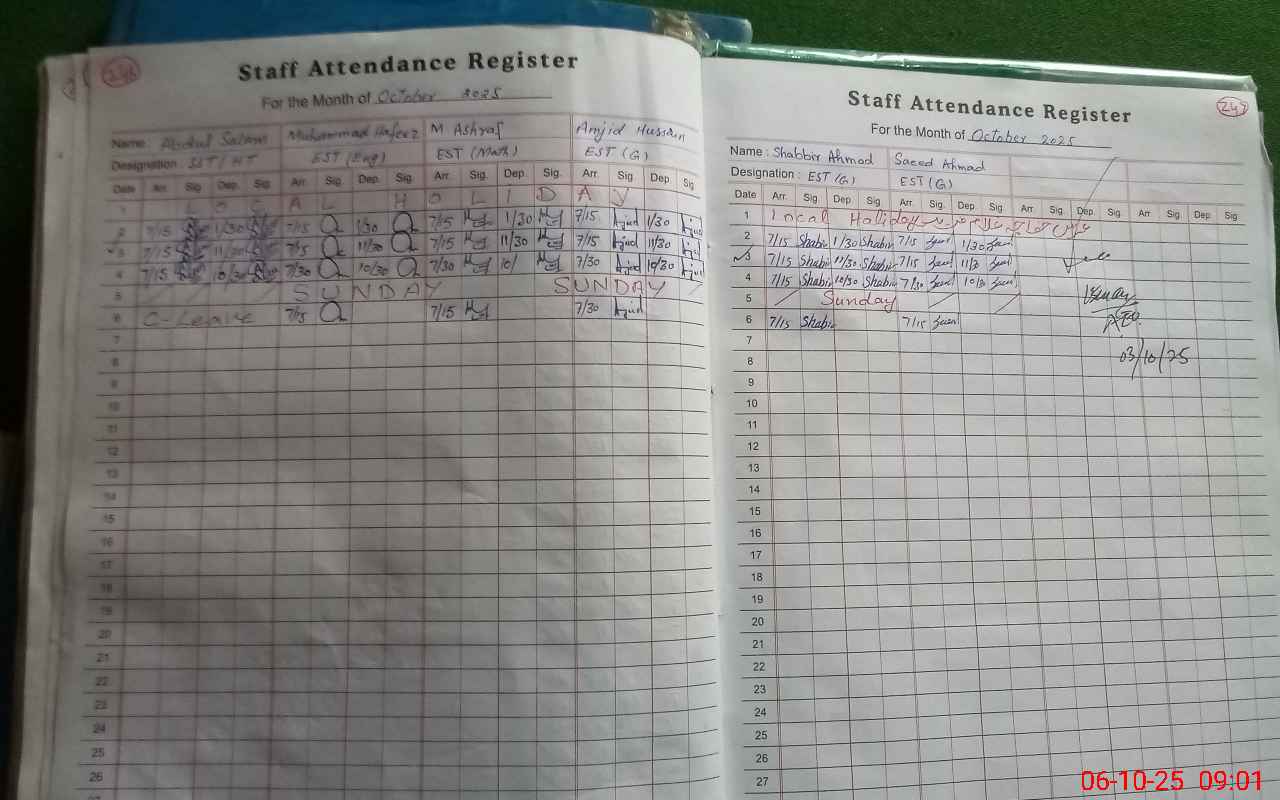 246
Staff Attendance Register
For the Month of October 2025
Name: Abdul Salam Muhammad Hafeez M Ashraf Amjid Hussain
Designation: SST/HT EST (Eng) EST (Math) EST (G)
Date Arr. Sig. Dep. Sig. Arr. Sig. Dep. Sig. Arr. Sig. Dep. Sig. Arr. Sig Dep Sig
1 L O C A L H O L I D A Y
2 7/15 1/30 7/15 1/30 7/15 1/30 7/15 Amjid 1/30 Amjid
3 7/15 11/30 7/15 11/30 7/15 11/30 7/15 Amjid 11/30 Amjid
4 7/15 10/30 7/30 10/30 7/30 10/ 7/30 Amjid 10/30 Amjid
5 SUNDAY SUNDAY
6 C-Leave 7/15 7/15 7/30 Amjid
7
8
9
10
11
12
13
14
15
16
17
18
19
20
21
22
23
24
25
26
247
Staff Attendance Register
For the Month of October 2025
Name: Shabbir Ahmad Saeed Ahmad
Designation: EST (G) EST (G)
Date Arr. Sig. Dep Sig Arr. Sig. Dep. Sig. Arr. Sig. Dep. Sig. Arr. Sig Dep Sig.
1 Local Holiday
2 7/15 Shabir 1/30 Shabir 7/15 1/30
3 7/15 Shabir 11/30 Shabir 7/15 11/3
4 7/15 Shabir 10/30 Shabir 7/30 10/30
5 Sunday
6 7/15 Shabir 7/15
03/10/25
7
8
9
10
11
12
13
14
15
16
17
18
19
20
21
22
23
24
25
26
27
06-10-25 09:01